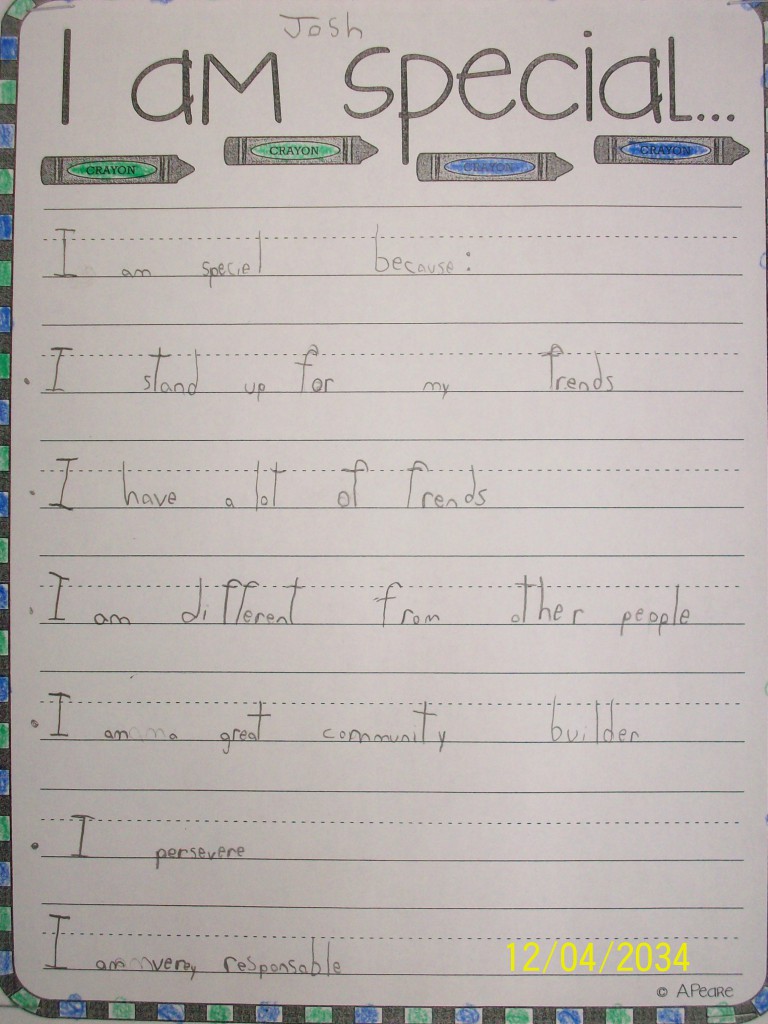 Josh
I am special...
CRAYON CRAYON CRAYON CRAYON
I am speciel because:
I stand up for my frends
I have a lot of frends
I am different from other people
I am a great community builder
I persevere
I am verey responsable
12/04/2034
© APeare